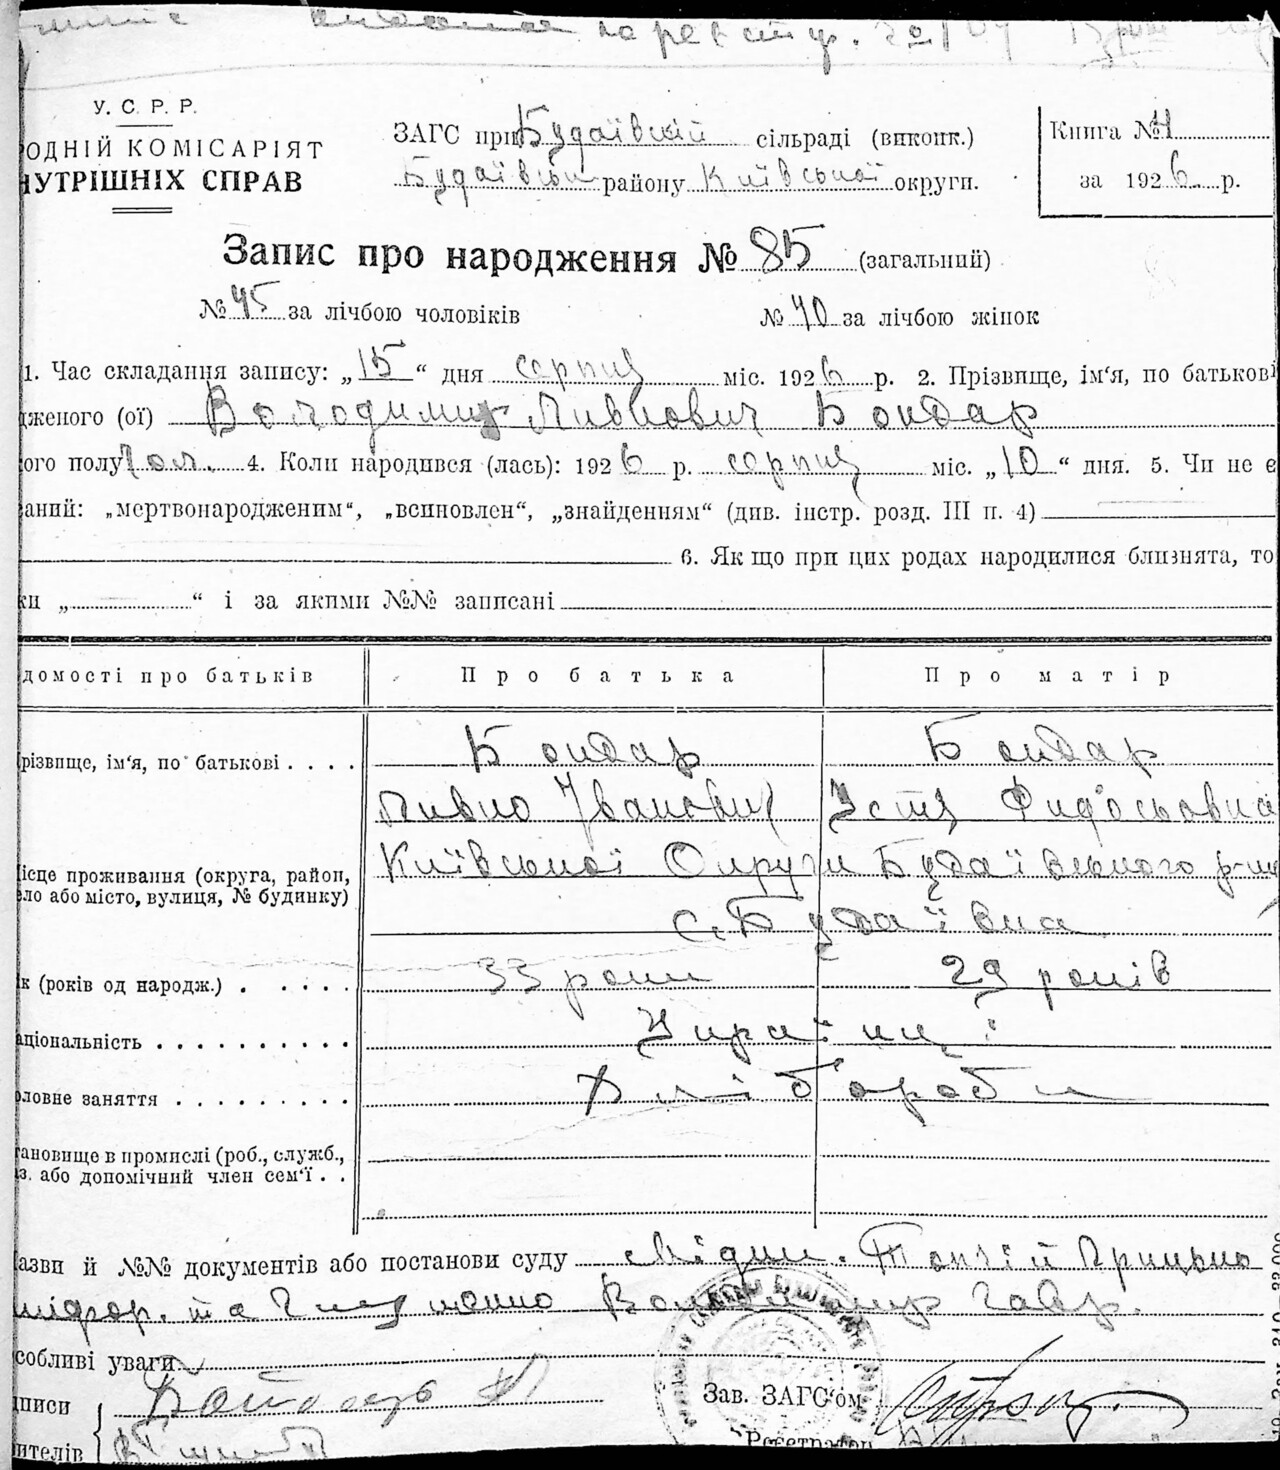 на реєстр.
У. С. Р. Р.
ОДНІЙ КОМІСАРІЯТ
НУТРІШНІХ СПРАВ
ЗАГС при Будаївській сільраді (виконк.)
Будаївськ району Київської округи.
Книга №
за 1926 р.
Запис про народження № 85 (загальний)
№ 45 за лічбою чоловіків № 40 за лічбою жінок
1. Час складання запису: „15“ дня серпня міс. 1926 р. 2. Прізвище, ім‘я, по батькові
дженого (ої) Володимир Пивнович Бондар
ого полу Чол. 4. Коли народився (лась): 1926 р. серпня міс. „10“ дня. 5. Чи не є
аний: „мертвонародженим“, „всиновлен“, „знайденням“ (див. інстр. розд. III п. 4)
6. Як що при цих родах народилися близнята, то
ки „ “ і за якими №№ записані
домості про батьків Про батька Про матір
різвище, ім‘я, по батькові . . . . Бондар Бондар
Пивно Іванович Устя Фидосьовна
ісце проживання (округа, район, Київської Округи Будаївського р-ну
ло або місто, вулиця, № будинку)
с. Будаївка
к (років од народж.) . . . . . 33 роки 29 років
аціональність . . . . . . . . . . Українці
оловне заняття . . . . . . . . . Хлібороби
тановище в промислі (роб., служб.,
аз. або допомічний член сем‘ї . .
азви й №№ документів або постанови суду Грицько
та
собливі уваги
дписи Зав. ЗАГС‘ом
ителів Реєстратор